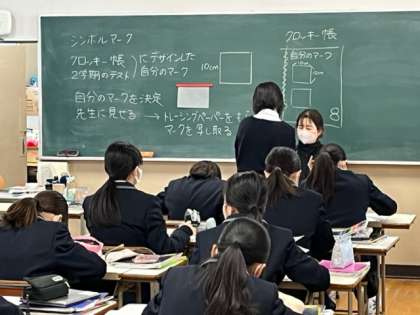 シンボルマーク
クロッキー帳
2学期のテスト
にデザインした
自分のマーク
10cm
自分のマークを決定
先生に見せる → トレーシングペーパーを
マークを写し取る
クロッキー帳
自分のマーク
10cm
10cm
8